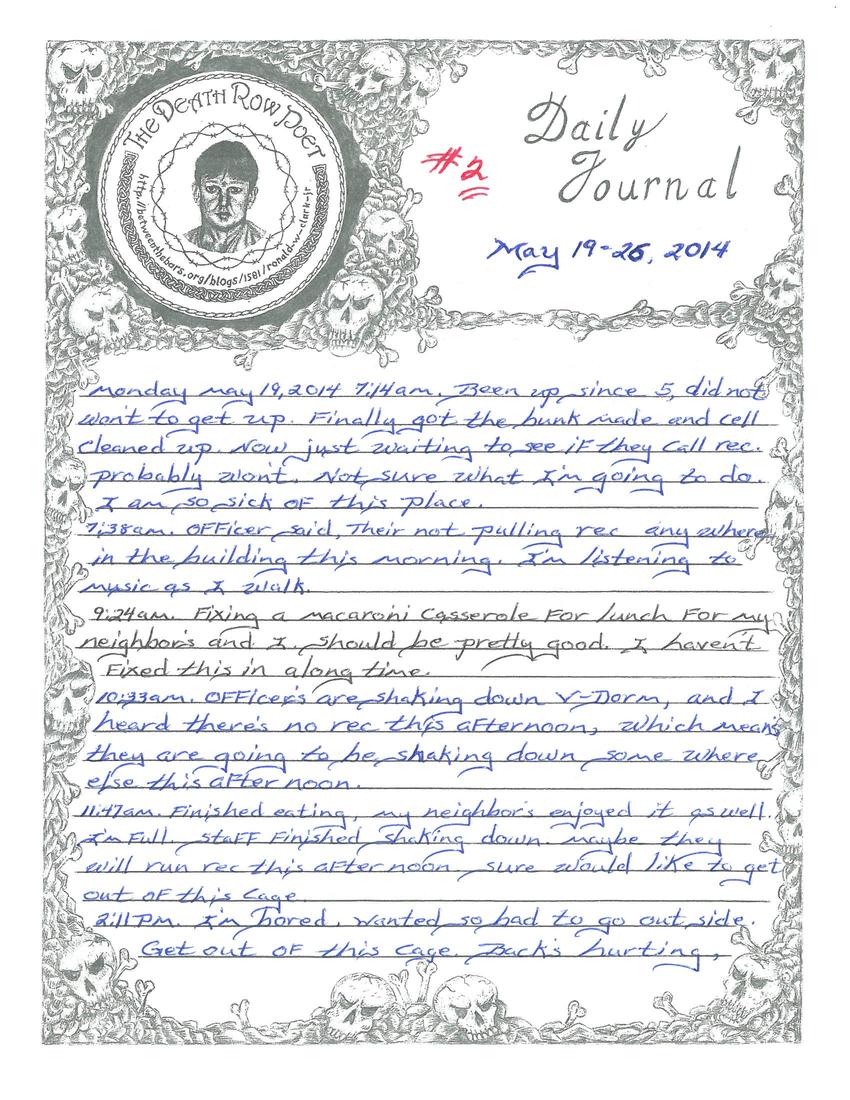 THE DEATH ROW POET
http://betweenthebars.org/blogs/1581/ronald-w-clark-jr
Daily
Journal
#2
May 19-26, 2014
Monday May 19, 2014 7:14am. Been up since 5, did not
won't to get up. Finally got the bunk made and cell
cleaned up. Now just waiting to see if they call rec.
probably won't. Not sure what I'm going to do.
I am so sick of this place.
7:38am. Officer said, Their not pulling rec any where
in the building this morning. I'm listening to
music as I walk.
9:24am. Fixing a macaroni casserole for lunch for my
neighbor's and I. should be pretty good. I haven't
fixed this in along time.
10:33am. Officer's are shaking down V-Dorm, and I
heard there's no rec this afternoon, which means
they are going to be shaking down some where
else this after noon.
11:47am. Finished eating, my neighbor's enjoyed it as well.
I'm full. staff finished shaking down. maybe they
will run rec this after noon. sure would like to get
out of this cage.
2:11pm. I'm bored. wanted so bad to go out side.
Get out of this cage. Back's hurting,